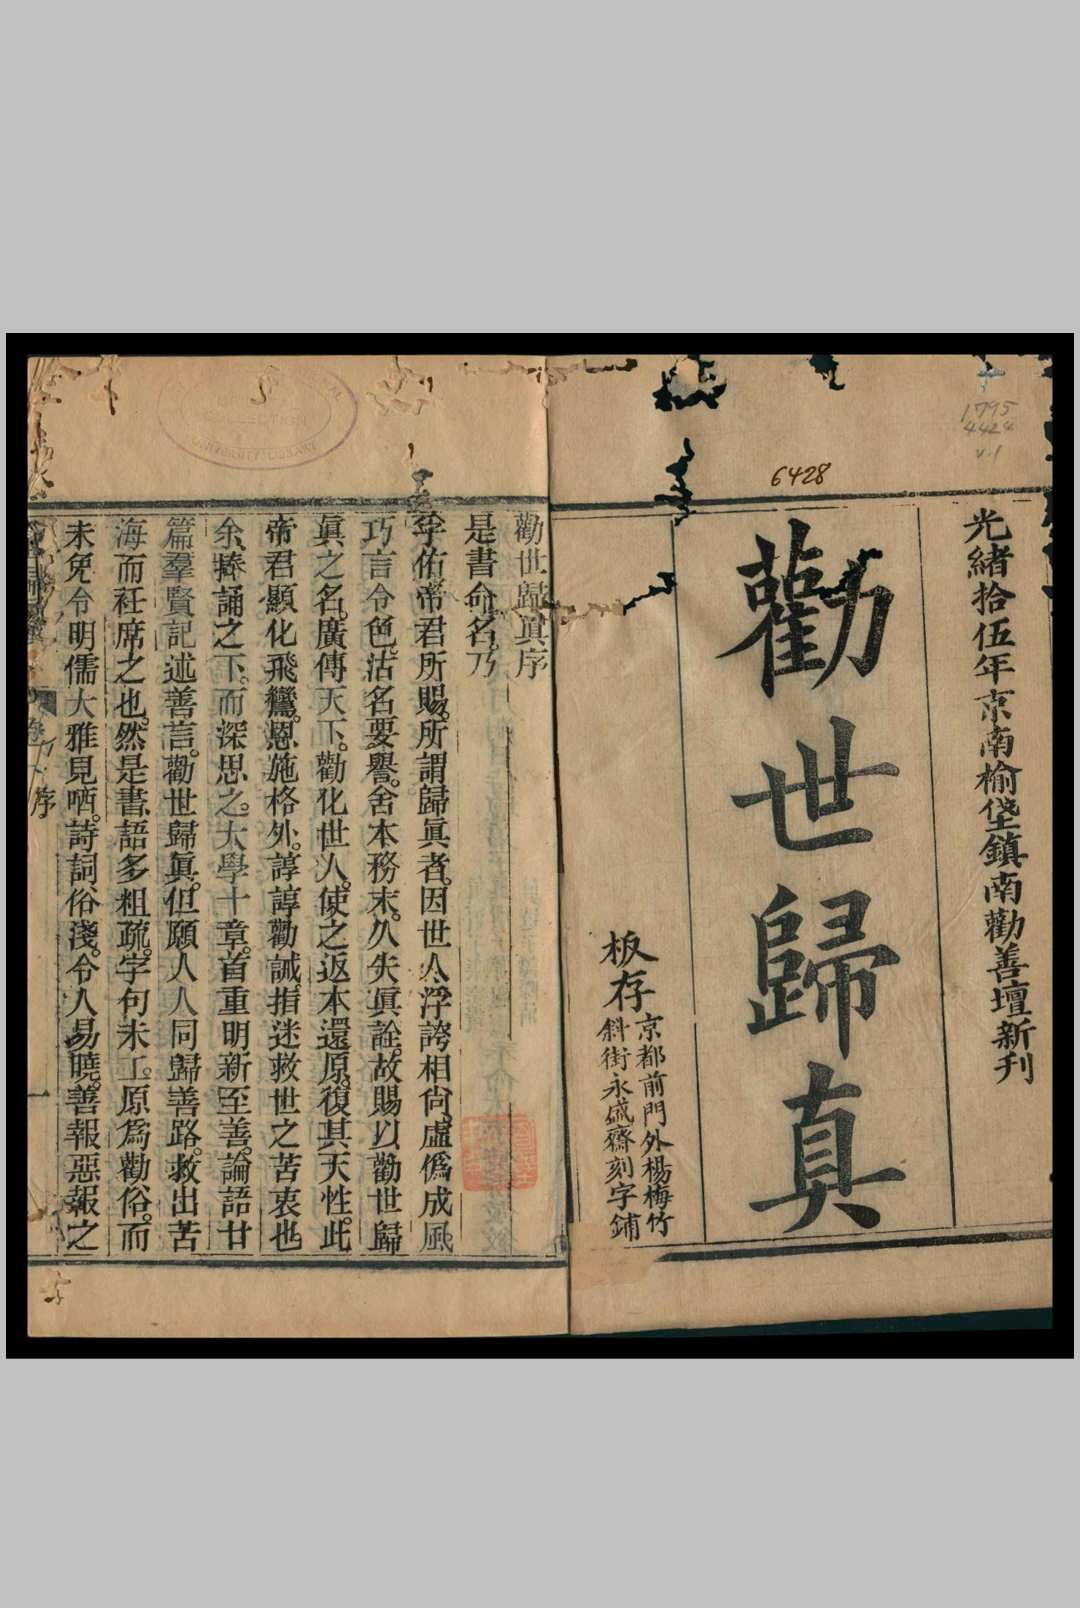 6428
1795
4424
v.1
光緒拾伍年京南榆垡鎮南勸善壇新刊
勸世歸真
板存
京都前門外楊梅竹
斜街永盛齋刻字鋪
勸世歸眞序
是書命名乃
孚佑帝君所賜。所謂歸眞者。因世人浮誇相尙。虛僞成風。
巧言令色。沽名要譽。舍本務末。久失眞詮。故賜以勸世歸
眞之名。廣傳天下。勸化世人。使之返本還原。復其天性。此
帝君顯化飛鸞。恩施格外。諄諄勸誡。指迷救世之苦衷也
余捧誦之下。而深思之。大學十章。首重明新至善。論語廿
篇羣賢記述善言。勸世歸眞。但願人人同歸善路。救出苦
海而衽席之也。然是書語多粗疏。字句未工。原爲勸俗。而
未免令明儒大雅見哂。詩詞俗淺。令人易曉。善報惡報之
序
一